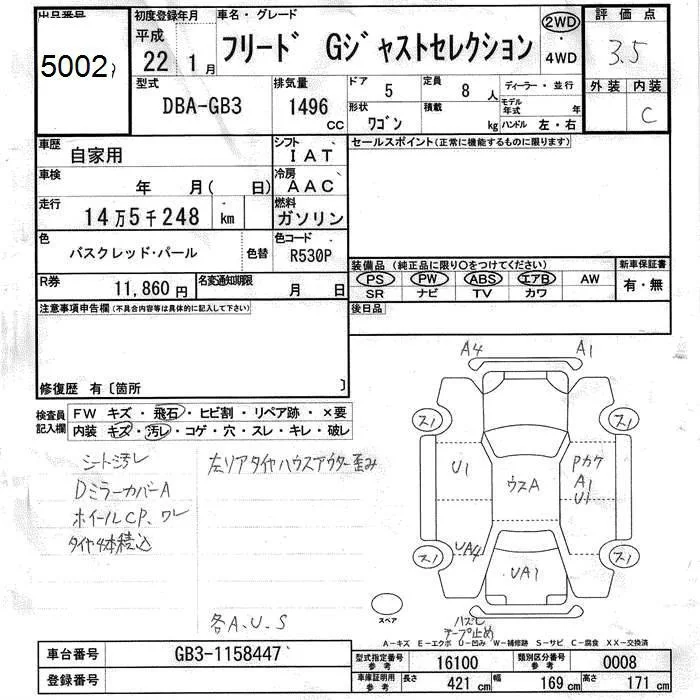 出品番号 初度登録年月 車名・グレード 評価点
5002 平成 22 1月 フリード Gジャストセレクション 2WD・4WD 3.5
型式 DBA-GB3 排気量 1496 cc ドア 5 定員 8 人 ディーラー・並行 外装 内装 C
形状 ワゴン 積載 kg モデル年式 年 ハンドル 左・右
車歴 自家用 シフト IAT セールスポイント(正常に機能するものに限ります)
車検 年 月( 日) 冷房 AAC
走行 14万5千248 km 燃料 ガソリン
色 バスクレッド・パール 色替 色コード R530P
装備品(純正品に限り○をつけてください) 新車保証書
R券 11,860円 名変通知期限 月 日 PS PW ABS エアB AW 有・無
SR ナビ TV カワ
注意事項申告欄(不具合内容等は具体的に記入して下さい) 後日品
修復歴 有〔箇所 〕
A4 A1
検査員記入欄 FW キズ・飛石・ヒビ割・リペア跡・×要
内装 キズ・汚レ・コゲ・穴・スレ・キレ・破レ
ス1 ス1
シート汚レ 左リアタイヤハウスアウター歪み
U1 ウスA Pカケ
DミラーカバーA A1
ホイールCP、ワレ U1
タイヤ4本積込
ス1 UA4 UA1 ス1
スペア
各A、U、S ハズレ
テープ止め
A－キズ E－エクボ U－凹み W－補修跡 S－サビ C－腐食 XX－交換済
車台番号 GB3-1158447 型式指定番号参考 16100 類別区分番号参考 0008
登録番号 車庫証明用参考 長さ 421 cm 幅 169 cm 高さ 171 cm